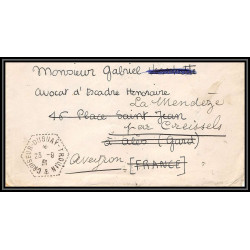 Monsieur Gabriel
Avocat d'Escadre Honoraire
La Mendèze
46 Place Saint Jean
par Creissels
à Alès (Gard)
Aveyron [FRANCE]
CROISEUR-DUGUAY-TROUIN
23-8